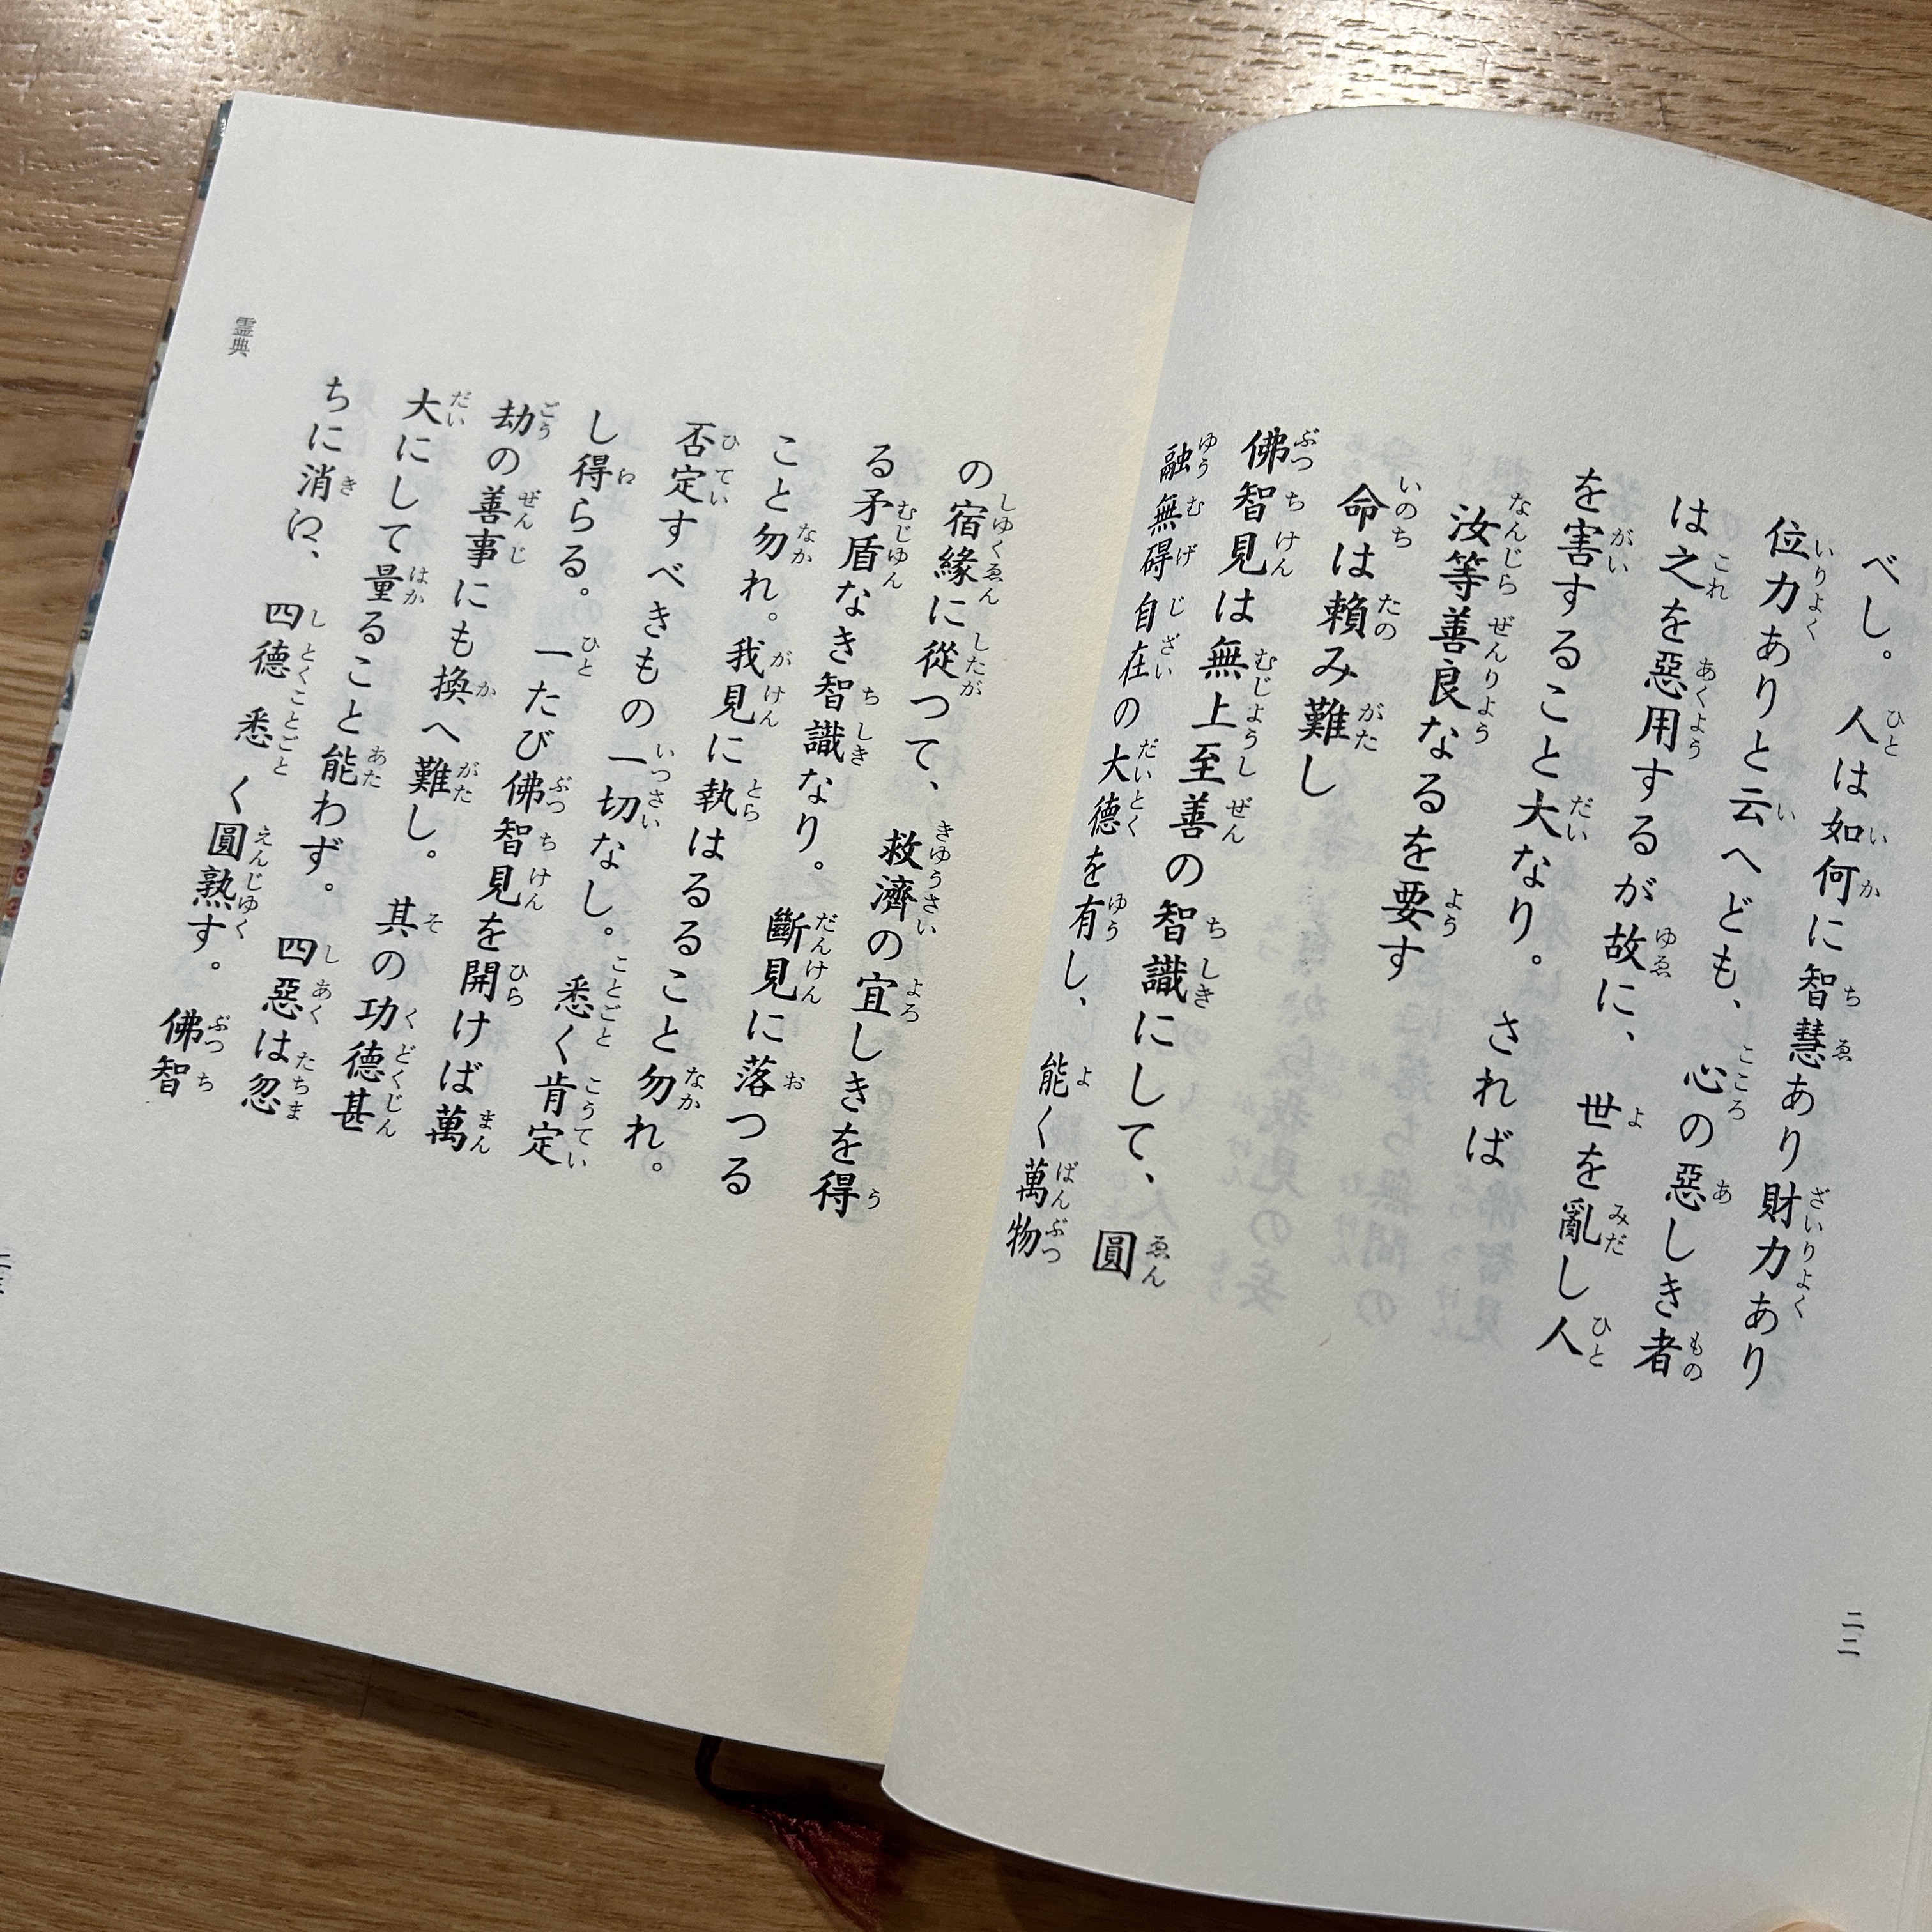 べし。人は如何に智慧あり財力あり
位力ありと云へども、心の惡しき者
は之を惡用するが故に、世を亂し人
を害すること大なり。されば
汝等善良なるを要す
命は賴み難し
佛智見は無上至善の智識にして、圓
融無碍自在の大德を有し、能く萬物
二二
の宿緣に從つて、救濟の宜しきを得
る矛盾なき智識なり。斷見に落つる
こと勿れ。我見に執はるること勿れ。
否定すべきもの一切なし。悉く肯定
し得らる。一たび佛智見を開けば萬
劫の善事にも換へ難し。其の功德甚
大にして量ること能わず。四惡は忽
ちに消え、四德悉く圓熟す。佛智
霊典